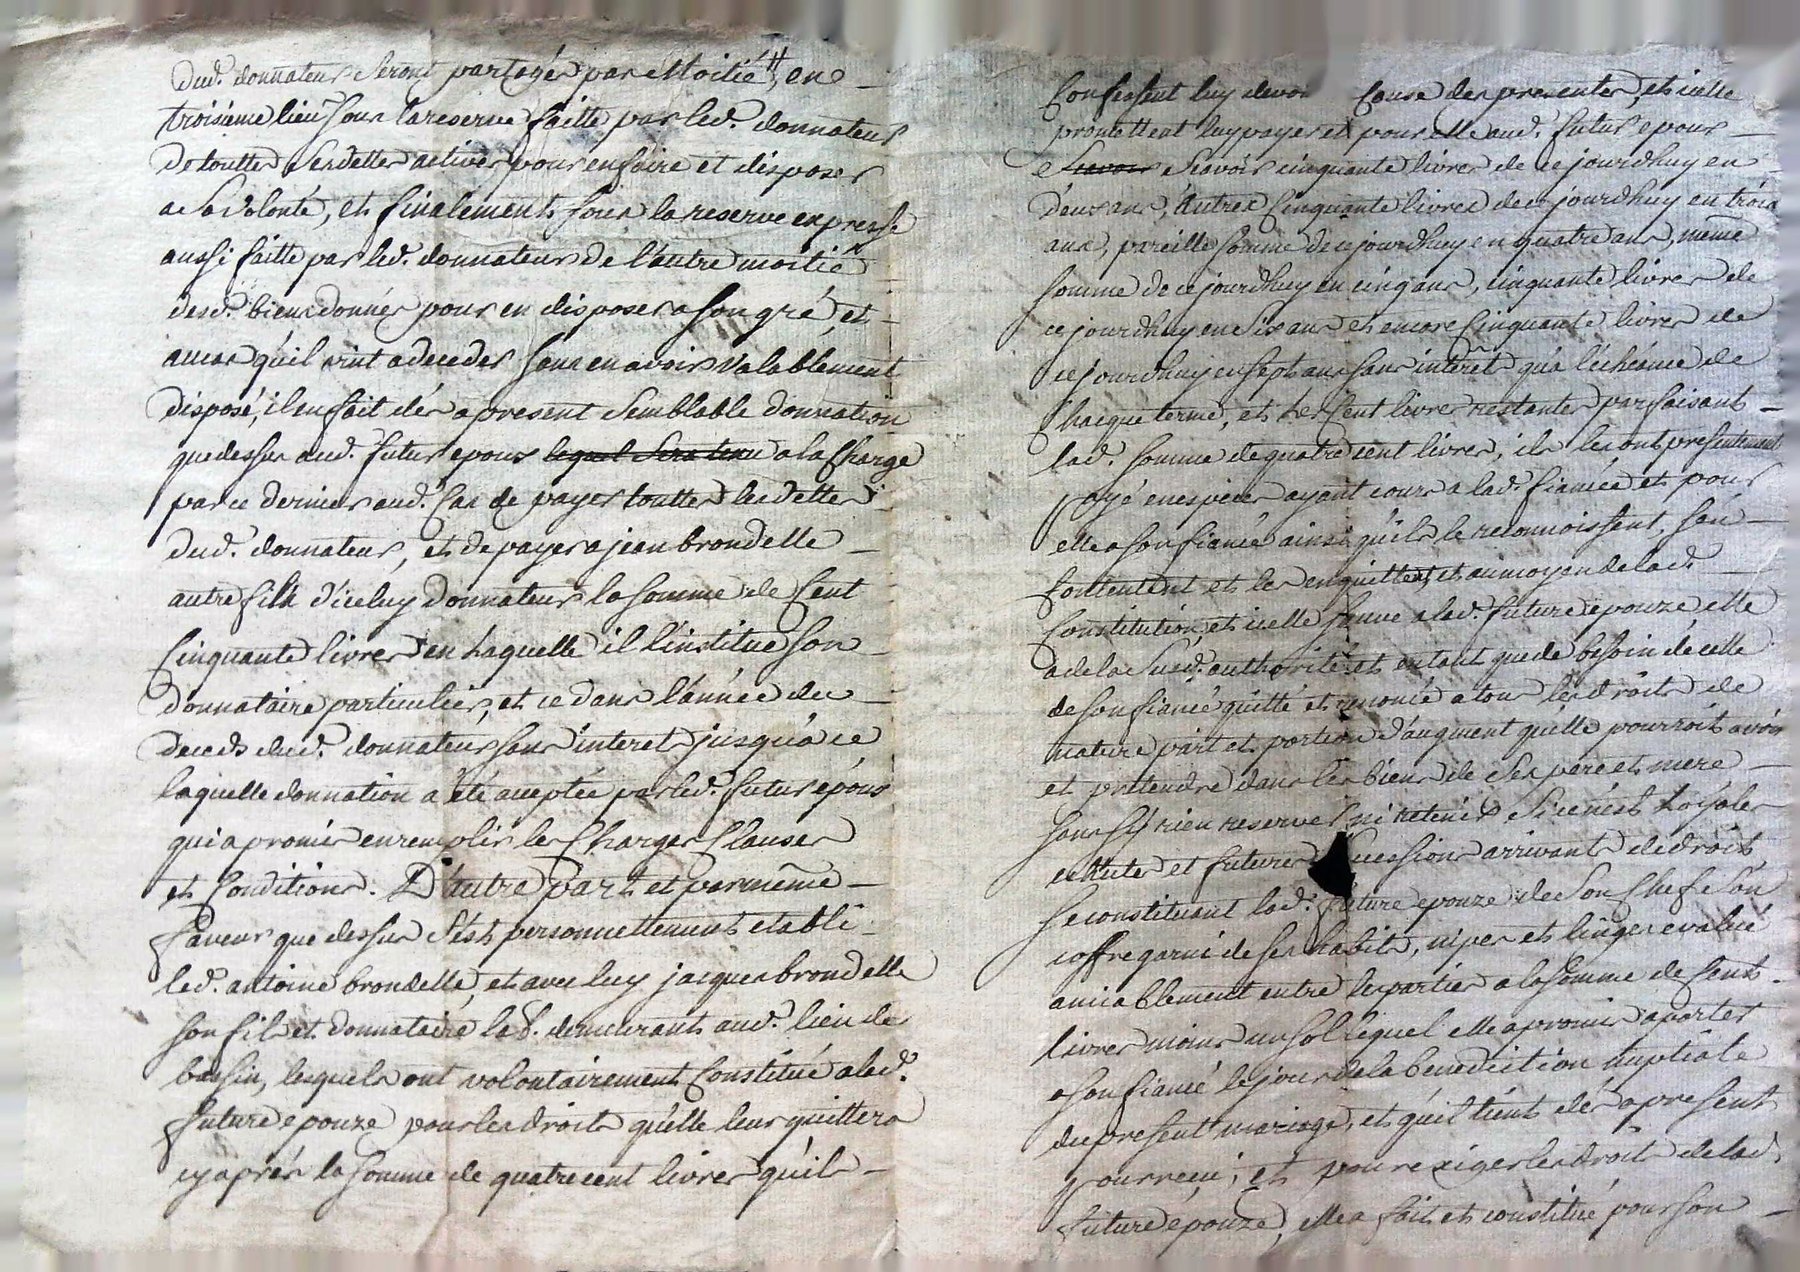 dud. donnateur seront partagés par Moitié #, en
troisieme lieu sous la reserve faitte par led. donnateur
de touttes ses dettes actives pour en faire et disposer
a sa volonté, et finalement sous la reserve expresse
aussi faitte par led. donnateur de l'autre moitié
desd. biens donnés pour en disposer a son gré, et
au cas qu'il vint a deceder sans en avoir valablement
disposé, il en fait dés a present semblable donnation
que dessus aud. futur epoux lequel sera tenu a la Charge
par ce dernier aud. Cas de payer touttes les dettes
dud. donnateur, et de payer a jean brondelle
autre fils d'iceluy donnateur la somme de Cent
Cinquante livres en laquelle il l'institue son
donnataire particulier, et ce dans l'année du
deceds dud. donnateur sans interet jusqu'a ce
laquelle donnation a été acceptée par led. futur epoux
qui a promis en remplir les Charges Clauses
et Conditions. D'autre part et par même
faveur que dessus s'est personnellement etabli
led. antoine brondelle, et avec luy jacques brondelle
son fils et donnataire la d. demeurants aud. lieu de
bassin, lesquels ont volontairement Constitué a lad.
future epouze pour les droits qu'elle leur quittera
cy aprés la somme de quatre cent livres qu'ils
Confessent luy devoir Cause des presentes, et icelle
promettent luy payer et pour elle aud. futur epoux
scavoir Scavoir cinquante livres de ce jourdhuy en
deux ans, autres Cinquante livres de ce jourdhuy en trois
ans, pareille somme de ce jourdhuy en quatre ans, même
somme de ce jourdhuy en cinq ans, cinquante livres de
ce jourdhuy en six ans et encore Cinquante livres de
ce jourdhuy en sept ans sans interêt qu'a l'écheance de
Chacque terme, et les Cent livres restantes parfaisant
lad. somme de quatre cent livres, ils les ont presentement
payé en especes ayant cours a lad. fiancée et pour
elle a son fiancé ainsi qu'ils le reconnoissent, s'en
Contentent et les en quittent, et au moyen de lad.
Constitution, et icelle sauve a lad. future epouze, elle
a de la susd. authorité et en tant que de besoin de celle
de son fiancé quitté et renoncé a tous les droits de
nature part et portion d'augment qu'elle pourroit avoir
et prétendre dans les biens de ses pere et mere
sans s'y rien reserver ni retenir si ce n'est loyales
echute et futures succession arrivant de droit
se constituant lad. future epouze de son Chef son
coffre garni de ses habits, nipes et linges evalué
amiablement entre les parties a la somme de Cent
livres moins un sol lequel elle a promis aporter
a son fiancé le jour de la benediction nuptiale
du present mariage, et qu'il tient dés a present
pour recu, et pour exiger les droits de lad.
future epouze, elle a fait et constitué pour son